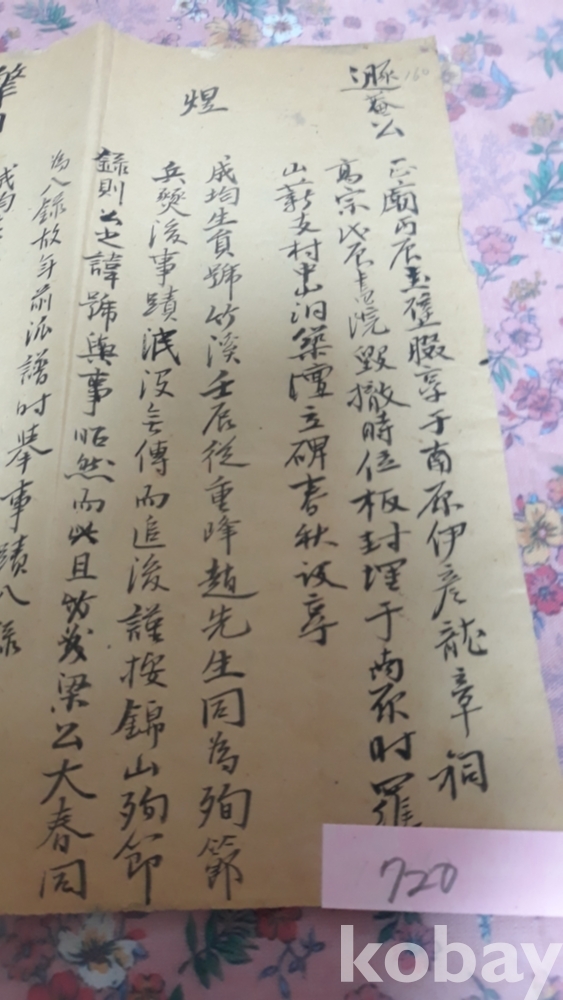 遯菴公
160
正廟丙辰玉壁腏享于南原伊彦龍章祠
高宗戊辰書院毁撤時位板封埋于南原时羅
山薪支村中山洞築壇立碑春秋设享
煜
成均生員號竹溪壬辰從重峰趙先生同為殉節
兵燹後事蹟泯没無傳而追後謹按錦山殉節
錄則公之諱號與事昭然而此且梁公大春同
為入錄故年前派譜时舉事蹟入錄
成均
720
kobay